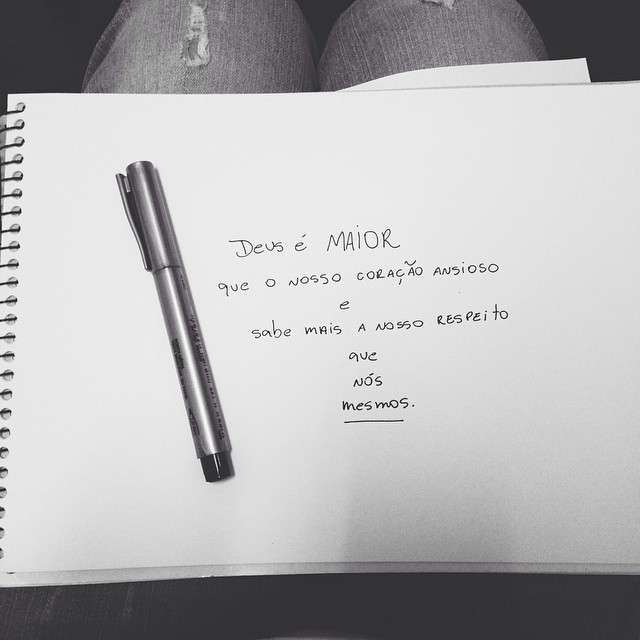 Deus é MAIOR
que o nosso coração ansioso
e
sabe mais a nosso respeito
que
nós
mesmos.